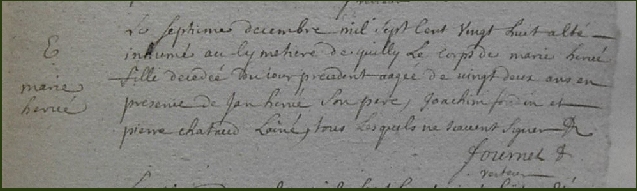 Le septieme decembre mil sept cent vingt huit a esté
E
inhumé au cymetiere de quilly Le corps de marie hervé
marie
fille decedée du jour precedent aagée de vingt deux ans en
hervé
presence de Jan hervé son pere, Joachim et
pierre chataud Lainé, tous lesquels ne scavent signer
fournet
recteur